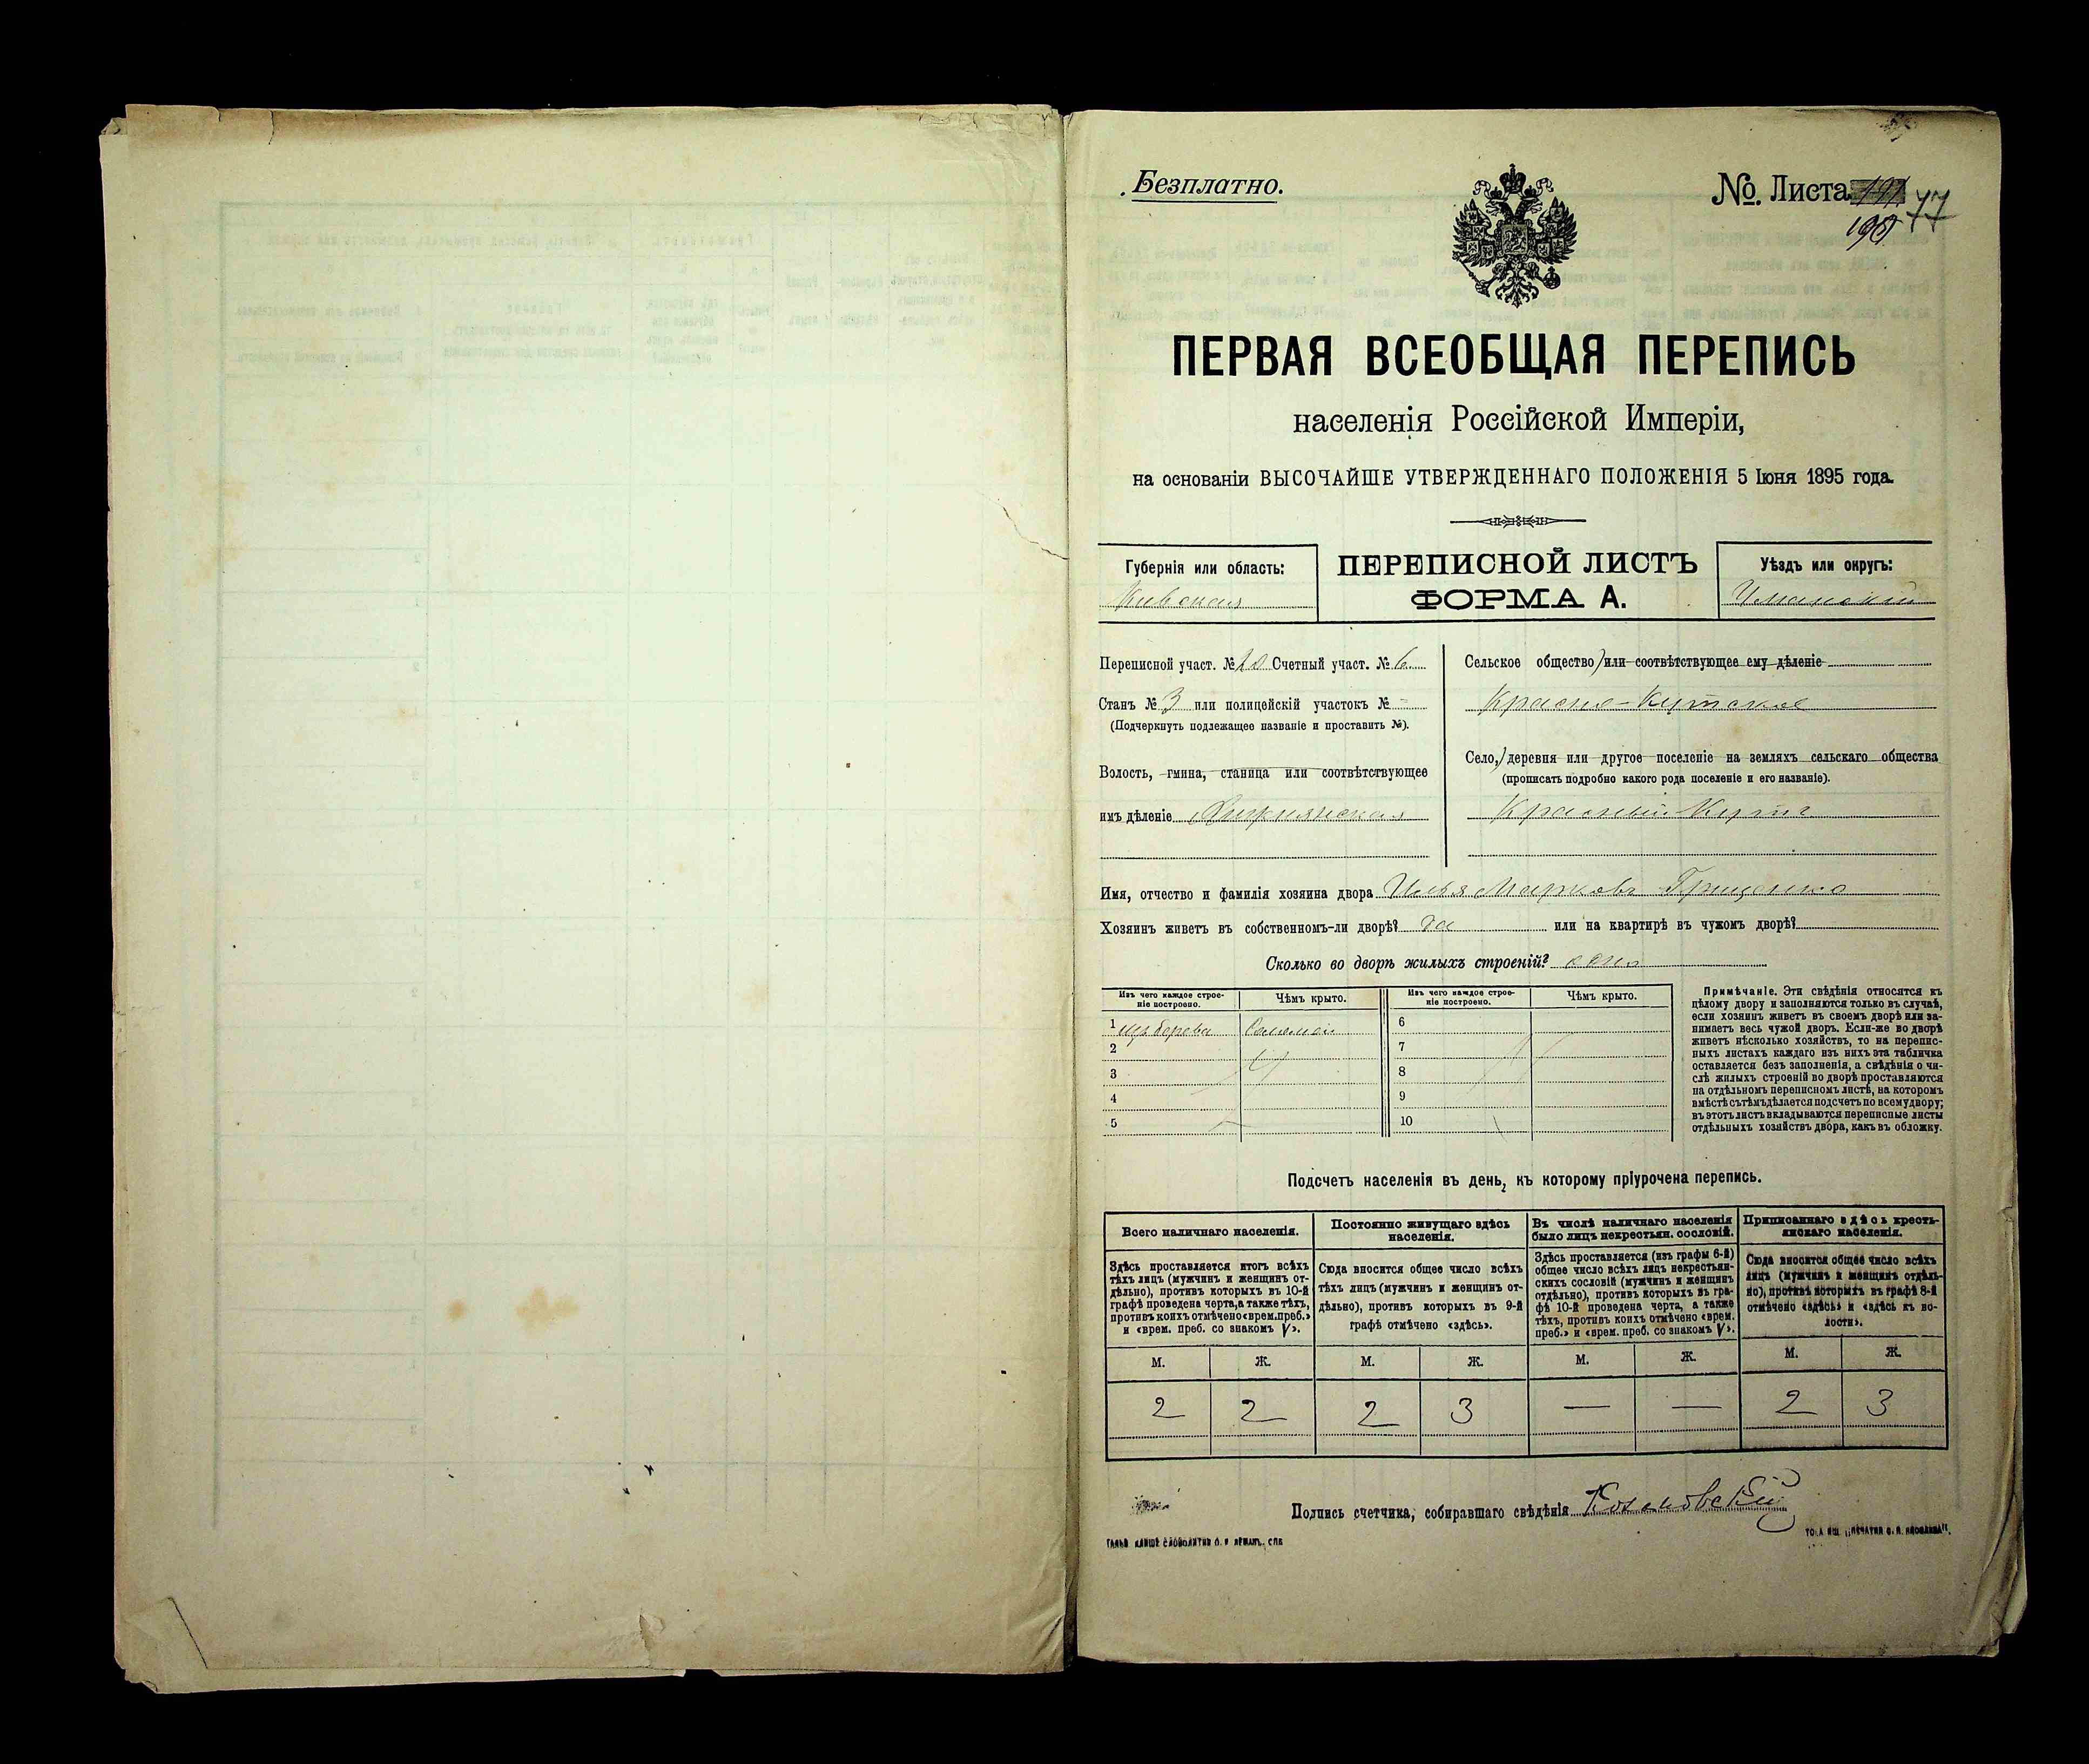 Безплатно.
№. Листа 77
ПЕРВАЯ ВСЕОБЩАЯ ПЕРЕПИСЬ
населенія Россійской Имперіи,
на основаніи ВЫСОЧАЙШЕ УТВЕРЖДЕННАГО ПОЛОЖЕНІЯ 5 Іюня 1895 года.
Губернія или область:
Кивская
ПЕРЕПИСНОЙ ЛИСТЪ
ФОРМА А.
Уѣздъ или округъ:
Уманскій
Переписной участ. № 20 Счетный участ. № 6
Станъ № 3 или полицейскій участокъ № -
(Подчеркнуть подлежащее названіе и проставить №).
Волость, гмина, станица или соотвѣтствующее
имъ дѣленіе
Сельское общество или соотвѣтствующее ему дѣленіе
Красно-Кутское
Село, деревня или другое поселеніе на земляхъ сельскаго общества
(прописать подробно какого рода поселеніе и его названіе).
Красный Кутъ
Имя, отчество и фамилія хозяина двора Илья Марковъ Грищенко
Хозяинъ живетъ въ собственномъ-ли дворѣ? да или на квартирѣ въ чужомъ дворѣ?
Сколько во дворѣ жилыхъ строеній? одно
Изъ чего каждое строе-
ніе построено.
Чѣмъ крыто.
Изъ чего каждое строе-
ніе построено.
Чѣмъ крыто.
1 изъ дерева Соломой
2
3
4
5
6
7
8
9
10
Примѣчаніе. Эти свѣдѣнія относятся къ
цѣлому двору и заполняются только въ случаѣ,
если хозяинъ живетъ въ своемъ дворѣ или за-
нимаетъ весь чужой дворъ. Если-же во дворѣ
живетъ нѣсколько хозяйствъ, то на перепис-
ныхъ листахъ каждаго изъ нихъ эта табличка
оставляется безъ заполненія, а свѣдѣнія о чи-
слѣ жилыхъ строеній во дворѣ проставляются
на отдѣльномъ переписномъ листѣ, на которомъ
вмѣстѣ съ тѣмъ дѣлается подсчетъ по всему двору;
въ этотъ листъ вкладываются переписные листы
отдѣльныхъ хозяйствъ двора, какъ въ обложку.
Подсчетъ населенія въ день, къ которому пріурочена перепись.
Всего наличнаго населенія.
Здѣсь проставляется итогъ всѣхъ
тѣхъ лицъ (мужчинъ и женщинъ от-
дѣльно), противъ которыхъ въ 10-й
графѣ проведена черта, а также тѣхъ,
противъ коихъ отмѣчено «врем. преб.»
и «врем. преб. со знакомъ V».
Постоянно живущаго здѣсь
населенія.
Сюда вносится общее число всѣхъ
тѣхъ лицъ (мужчинъ и женщинъ от-
дѣльно), противъ которыхъ въ 9-й
графѣ отмѣчено «здѣсь».
Въ числѣ наличнаго населенія
было лицъ некрестьян. сословій.
Здѣсь проставляется (изъ графы 6-й)
общее число всѣхъ лицъ некрестьян-
скихъ сословій (мужчинъ и женщинъ
отдѣльно), противъ которыхъ въ гра-
фѣ 10-й проведена черта, а также
тѣхъ, противъ коихъ отмѣчено «врем.
преб.» и «врем. преб. со знакомъ V».
Приписаннаго здѣсь кресть-
янскаго населенія.
Сюда вносится общее число всѣхъ
лицъ (мужчинъ и женщинъ отдѣль-
но), противъ которыхъ въ графѣ 8-й
отмѣчено «здѣсь» и «здѣсь къ во-
лости».
М. Ж. М. Ж. М. Ж. М. Ж.
2 2 2 3 — — 2 3
Подпись счетчика, собиравшаго свѣдѣнія